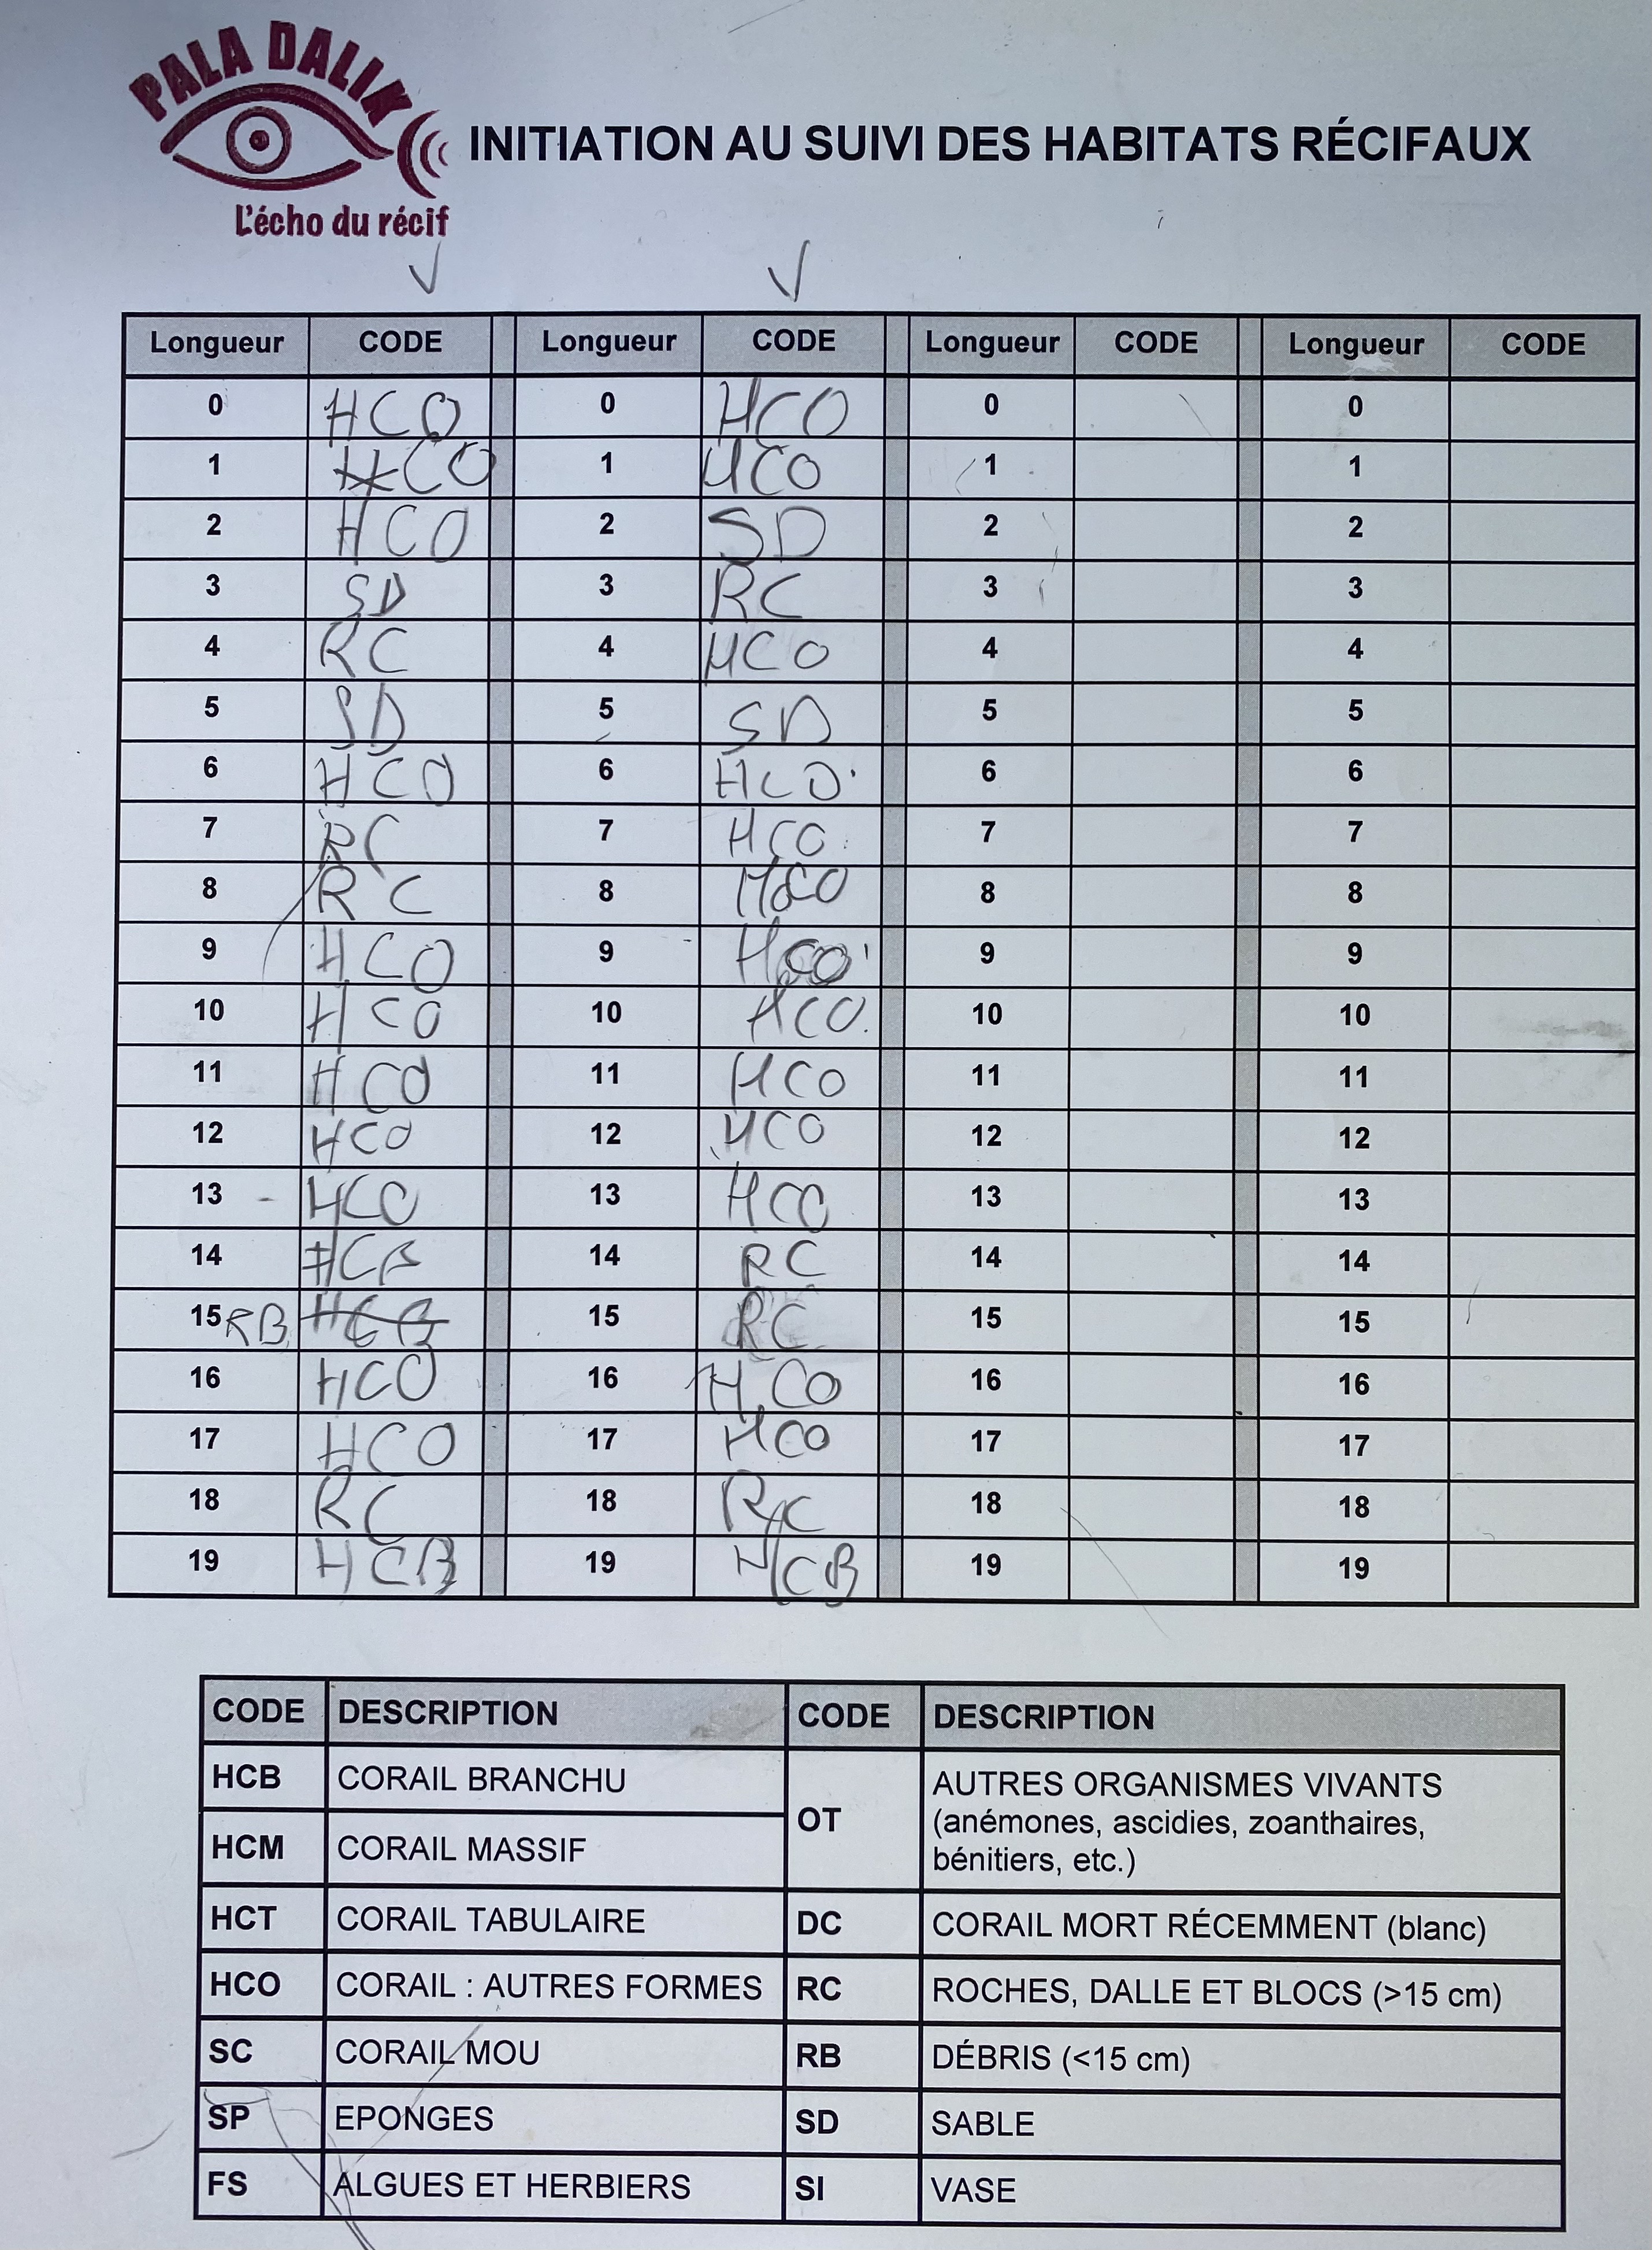 PALA DALIK
L'écho du récif
INITIATION AU SUIVI DES HABITATS RÉCIFAUX
Longueur CODE Longueur CODE Longueur CODE Longueur CODE
0 HCO 0 HCO 0 0
1 HCO 1 HCO 1 1
2 HCO 2 SD 2 2
3 SD 3 RC 3 3
4 RC 4 HCO 4 4
5 SD 5 SD 5 5
6 HCO 6 HCO 6 6
7 RC 7 HCO 7 7
8 RC 8 HCO 8 8
9 HCO 9 HCO 9 9
10 HCO 10 HCO 10 10
11 HCO 11 HCO 11 11
12 HCO 12 HCO 12 12
13 HCO 13 HCO 13 13
14 HCB 14 RC 14 14
15 RB HCB 15 RC 15 15
16 HCO 16 HCO 16 16
17 HCO 17 HCO 17 17
18 RC 18 RC 18 18
19 HCB 19 HCB 19 19
CODE DESCRIPTION CODE DESCRIPTION
HCB CORAIL BRANCHU
HCM CORAIL MASSIF
OT AUTRES ORGANISMES VIVANTS
(anémones, ascidies, zoanthaires,
bénitiers, etc.)
HCT CORAIL TABULAIRE DC CORAIL MORT RÉCEMMENT (blanc)
HCO CORAIL : AUTRES FORMES RC ROCHES, DALLE ET BLOCS (>15 cm)
SC CORAIL MOU RB DÉBRIS (<15 cm)
SP EPONGES SD SABLE
FS ALGUES ET HERBIERS SI VASE